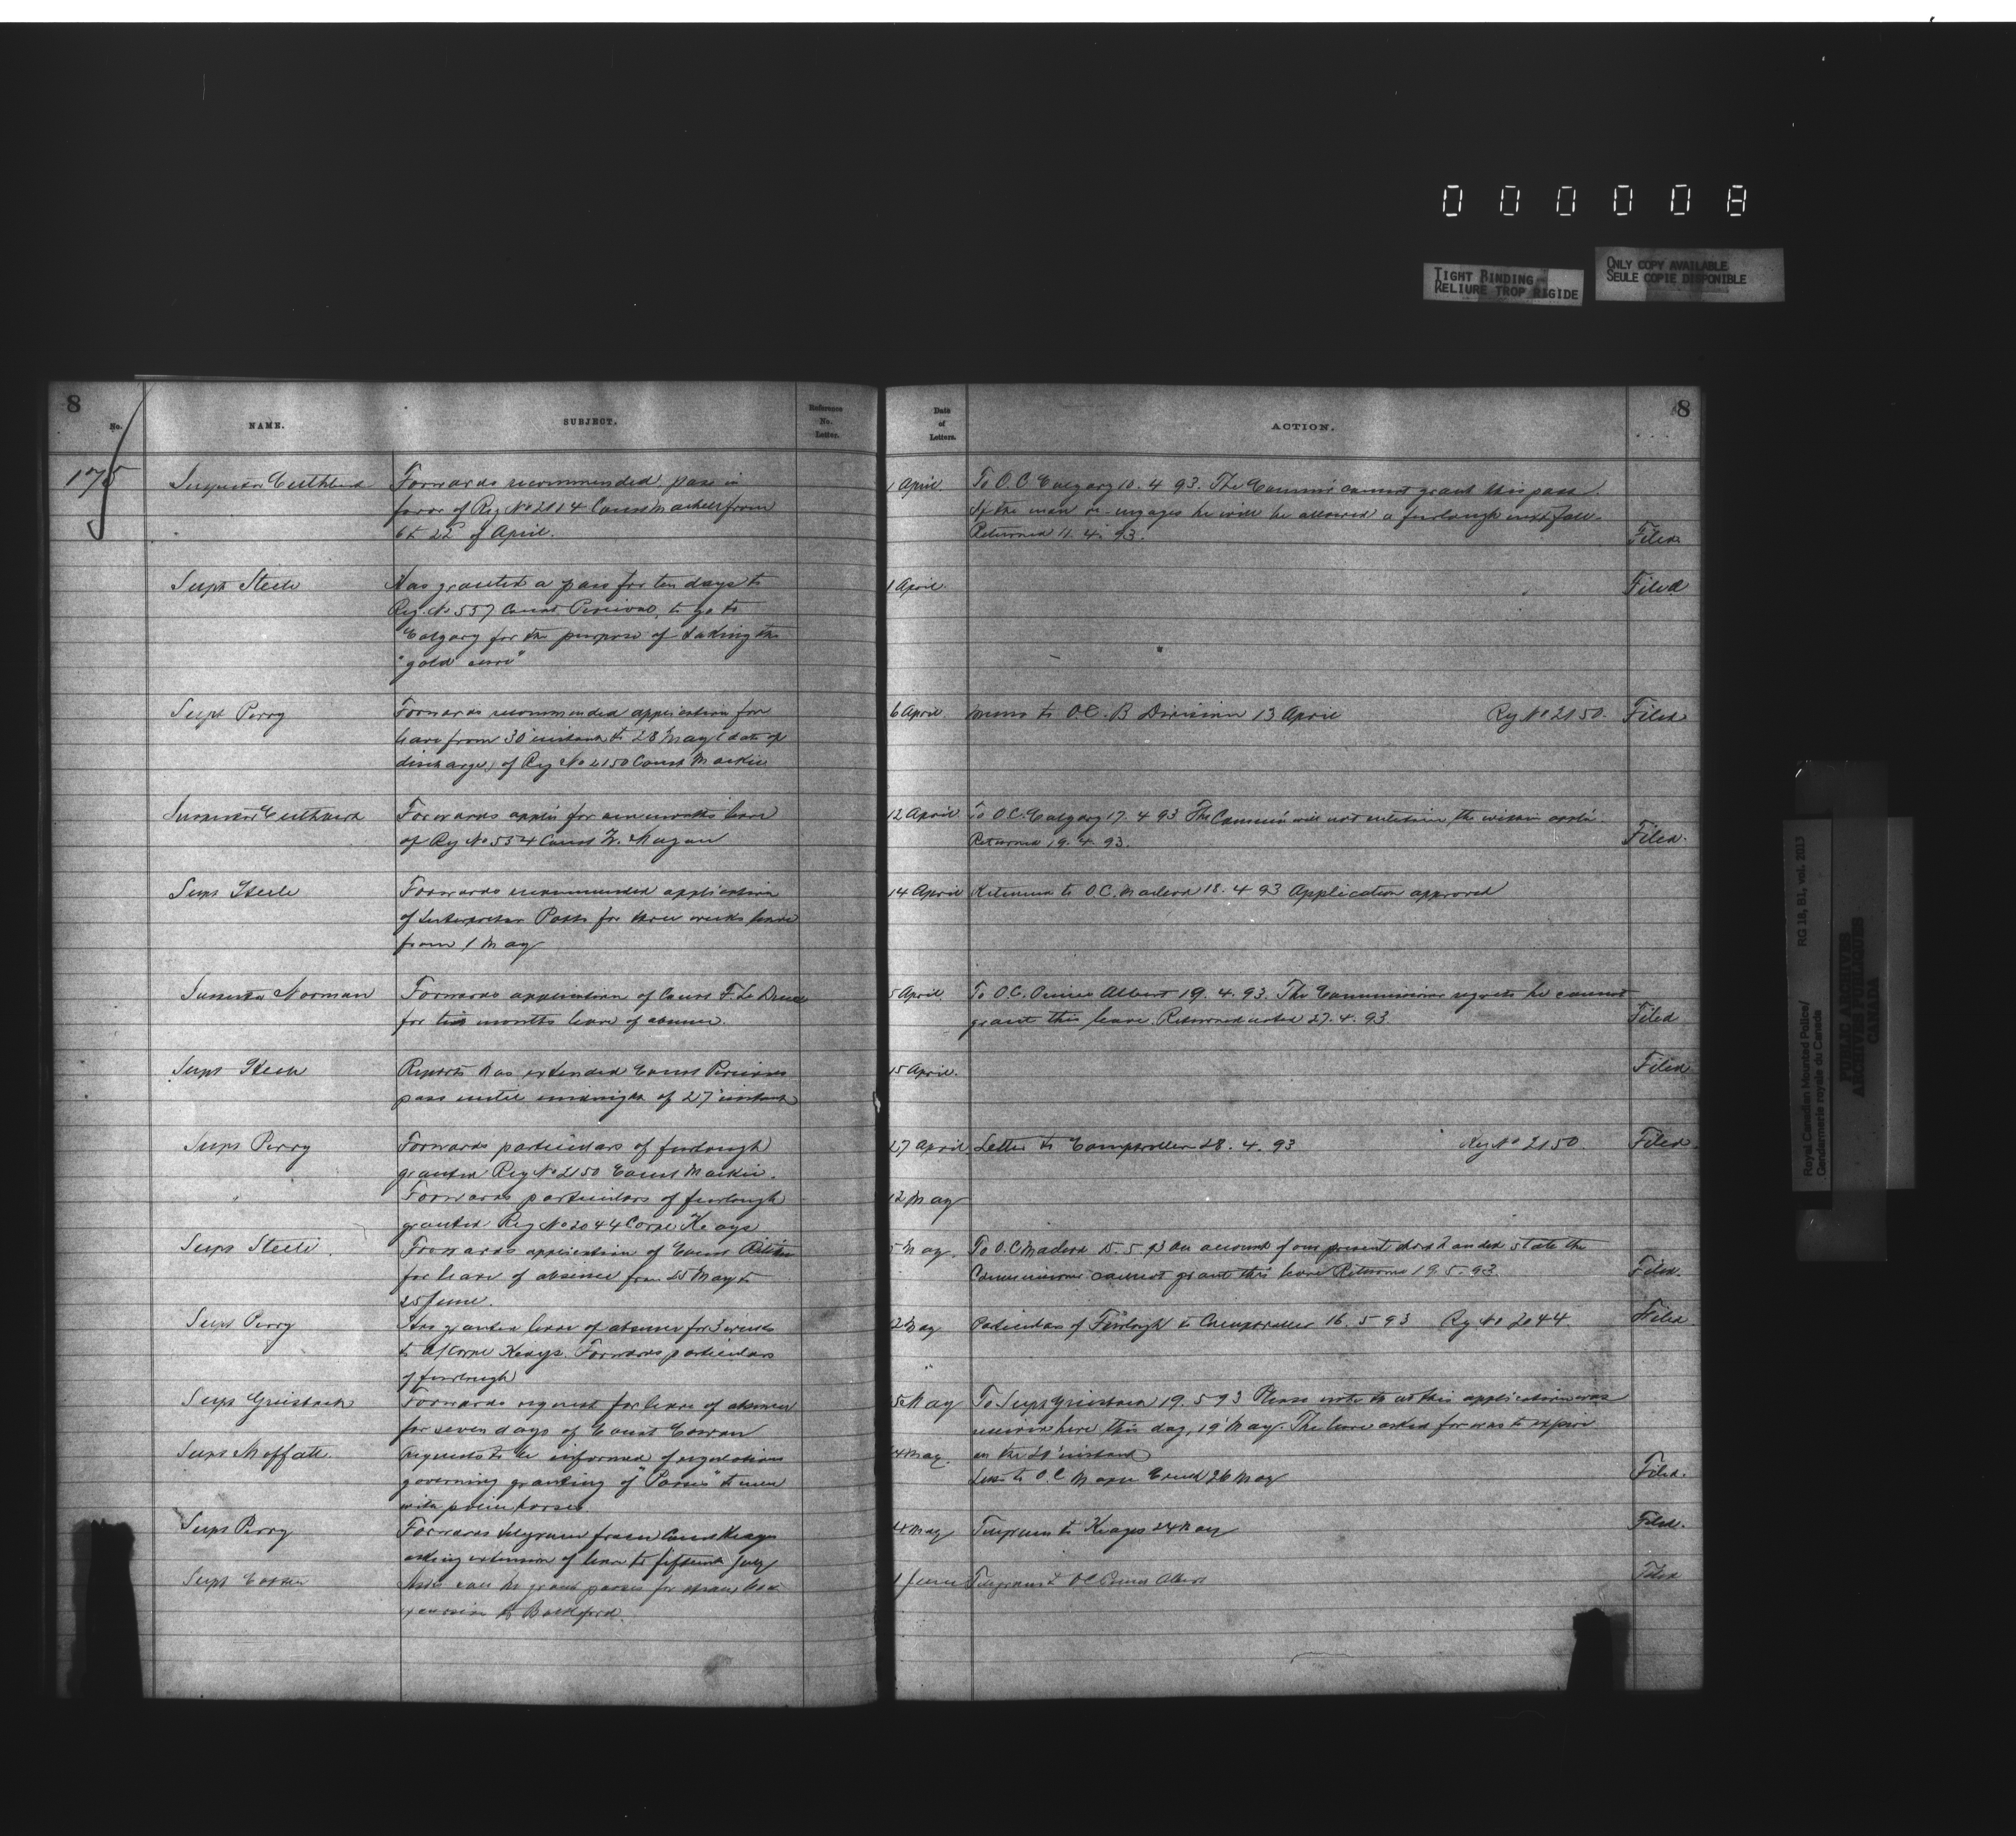 0 0 0 0 0 8
TIGHT BINDING
RELIURE TROP RIGIDE
ONLY COPY AVAILABLE
SEULE COPIE DISPONIBLE
8
No.
NAME.
SUBJECT.
Reference
No.
Letter.
175
Inspector Cuthbert
Forwards recommended pass in
favor of Reg No 2014 Const from
6 to 22 of April.
Supt Steele
Has granted a pass for ten days to
Reg. No 557 Const Percival, to go to
Calgary for the purpose of taking the
"gold cure"
Supt Perry
Forwards recommended application for
leave from 30 instant to 28 May (date of
discharge) of Reg No 2150 Const Mackie
Inspector Cuthbert
Forwards appln for one months leave
of Reg No 554 Const
Supt Steele
Forwards recommended application
of Interpreter Potts for three weeks leave
from 1 May
Inspector Norman
Forwards application of Const
for two months leave of absence.
Supt Steele
Reports has extended Const Percivals
pass until midnight of 27 instant
Supt Perry
Forwards particulars of furlough
granted Reg No 2150 Const Mackie.
"
Forwards particulars of furlough
granted Reg No 2044 Corpl Keays
Supt Steele.
Forwards application of Const
for leave of absence from 25 May to
25 June.
Supt Perry
Has granted leave of absence for 3 weeks
to A/Corpl Keays. Forwards particulars
of furlough
Supt Griesbach
Forwards request for leave of absence
for seven days of Const Cowan
Supt Moffatt.
Requests to be informed of regulations
governing granting of "Passes" to men
with police horses
Supt Perry
Forwards telegram from Const Keays
asking extension of leave to fifteenth July
Supt Cotton
Asks can he grant passes for steam boat
excursion to Battleford.
Date
of
Letters.
ACTION.
8
1 April.
To O.C Calgary 10. 4 93. The Commr cannot grant this pass.
If the man re-engages he will be allowed a furlough next fall.
Returned 11. 4. 93.
Filed
1 April.
Filed
6 April
Memo to O.C. B Division 13 April
Reg No 2150.
Filed
12 April
To O.C. Calgary 17. 4 93 The Commr will not entertain the within appln.
Returned 19. 4. 93.
Filed.
14 April
Returned to O.C. Macleod 18. 4 93 Application approved
5 April
To O.C. Prince Albert 19. 4. 93. The Commissioner regrets he cannot
grant this leave. Returned noted 27. 4. 93.
Filed
15 April.
Filed
27 April
Letter to Comptroller 28. 4. 93
Reg No 2150.
Filed.
12 May
5 May.
To O.C Macleod 15. 5. 93 On account of our present short handed state the
Commissioner cannot grant this leave Returned 19. 5. 93.
Filed.
2 May
Particulars of Furlough to Comptroller 16. 5 93 Reg No 2044
Filed
"
5 May
To Supt Griesbach 19. 5 93 Please note that this application was
received here this day, 19 May. The leave asked for was to expire
on the 20 instant
4 May.
Letter to O.C Maple Creek 26 May
Filed.
4 May
Telegram to Keays 24 May
Filed.
1 June
Telegram to OC Prince Albert
Filed
Royal Canadian Mounted Police/
Gendarmerie royale du Canada
RG 18, B1, vol. 2013
PUBLIC ARCHIVES
ARCHIVES PUBLIQUES
CANADA